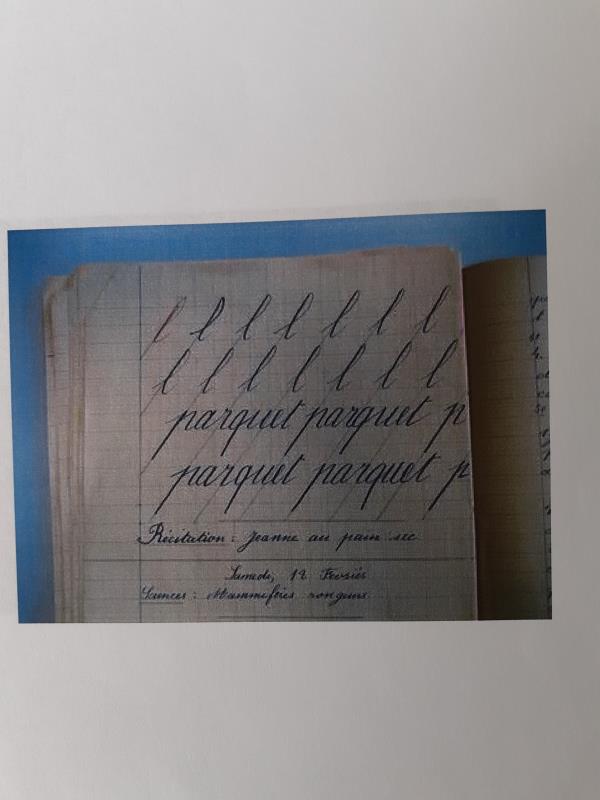 l l l l l l l
l l l l l l l
parquet parquet p
parquet parquet p
Récitation : Jeanne au pain sec
Samedi, 12 Février
Sciences : Mammifères rongeurs